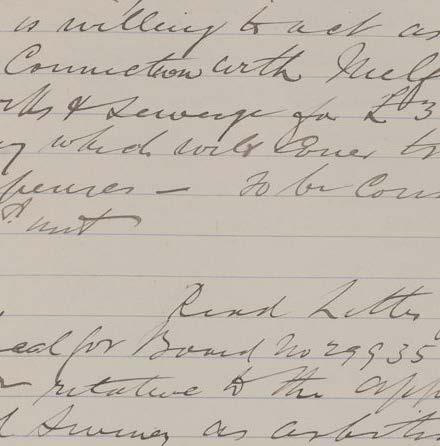 is willing to act as
Connection with Melf
orks & Sewerage for £3
which will cover tr
penses — To be Cons
Read Letter
eal for Board No 29935
relative to the app
d Sweeney as arbitr